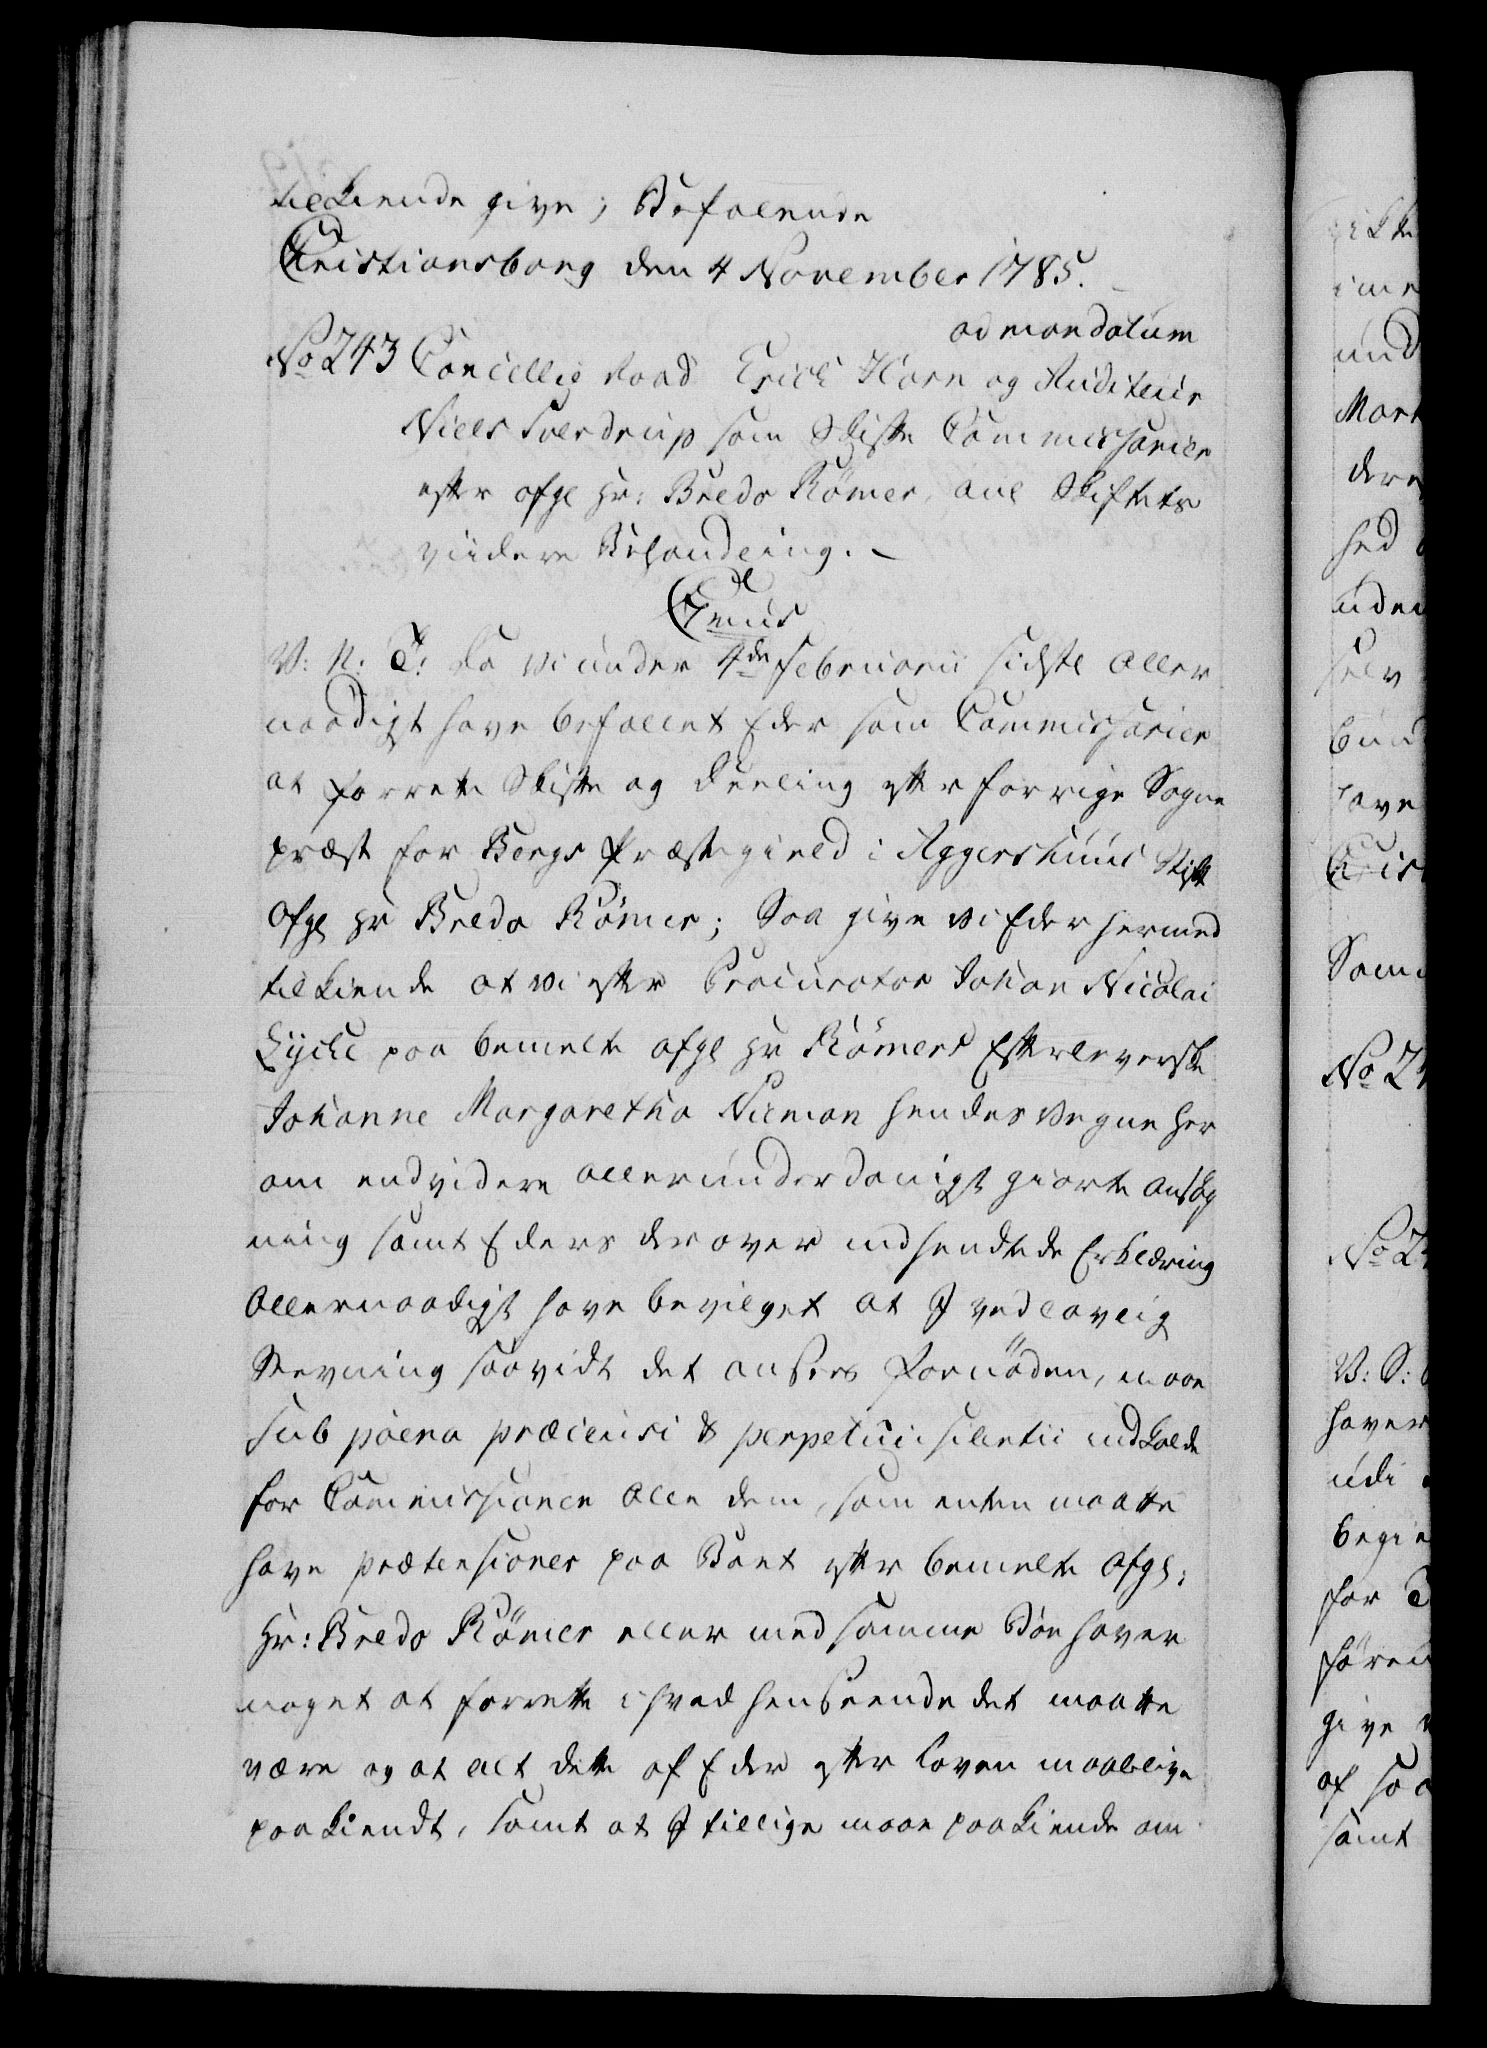 tilkiende give; Befalende
Christiansborg den 4 November 1785.
ad mandatum
No 243 Cancellie Raad Erich Horn og Auditeur
Niels Sverdrup som Skifte Commissarier
efter afgl Hr: Bredo Römer, anl Skiftets
viidere Behandling. –
C 7mus
V: N: T: Da vi under 4de Februarii sidstl Aller
naadigst have befallet Eder som Commissarier
at forrette Skifte og Deeling efter forrige Sogne
præst for Bergs Præstegield i Aggershuus Stift
Afgl Hr Bredo Römer; Saa give vi Eder hermed
tilkiende at vi efter Procurator Johan Nicolai
Lycke paa bemelte afgl Hr Römers Efterleverske
Johanne Margaretha Nieman hendes Vegne her
om endvidere allerunderdanigst giorte Ansøg
ning samt Eders derover indsendte de Erklæring
Allernaadigst have bevilget at I ved lovlig
Stevning saavidt det ansees fornöden, maae
sub poena præclusi & perpetui silentii indkalde
for Commissionen Alle dem, som enten maatte
have prætensioner paa Boet efter bemelte Afgl:
Hr: Bredo Römer eller med samme Boe haver
noget at forrette i hvad henseende det maatte
være og at alt dette af Eder efter Loven maa blive
paakiendt, samt at I tillige maae paakiende om